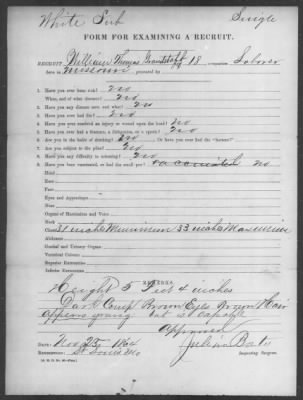 White Sub Single
FORM FOR EXAMINING A RECRUIT.
RECRUIT William Thomas 18 occupation Laborer
born in Missouri, presented by
1. Have you ever been sick? No
When, and of what disease? No
2. Have you any disease now, and what? No
3. Have you ever had fits? No
4. Have you ever received an injury or wound upon the head? No
5. Have you ever had a fracture, a dislocation, or a sprain? No
6. Are you in the habit of drinking? No Or have you ever had the "horrors"? 
7. Are you subject to the piles? No
8. Have you any difficulty in urinating? No
9. Have you been vaccinated, or had the small pox? No
Mind
Head
Face
Eyes and Appendages
Nose
Mouth
Organs of Mastication and Voice
Neck
Chest 31 inches Minimum 33 inches Maximum
Abdomen
Genital and Urinary Organs
Vertebral Column
Superior Extremities
Inferior Extremities
REMARKS.
Height 5 Feet 4 inches
Dark Comp Brown Eyes Brown Hair
Appears young but is Capable
Approved
DATE: Nov 25 1864 Julian Bates
RENDEZVOUS: St Louis Mo Inspecting Surgeon.